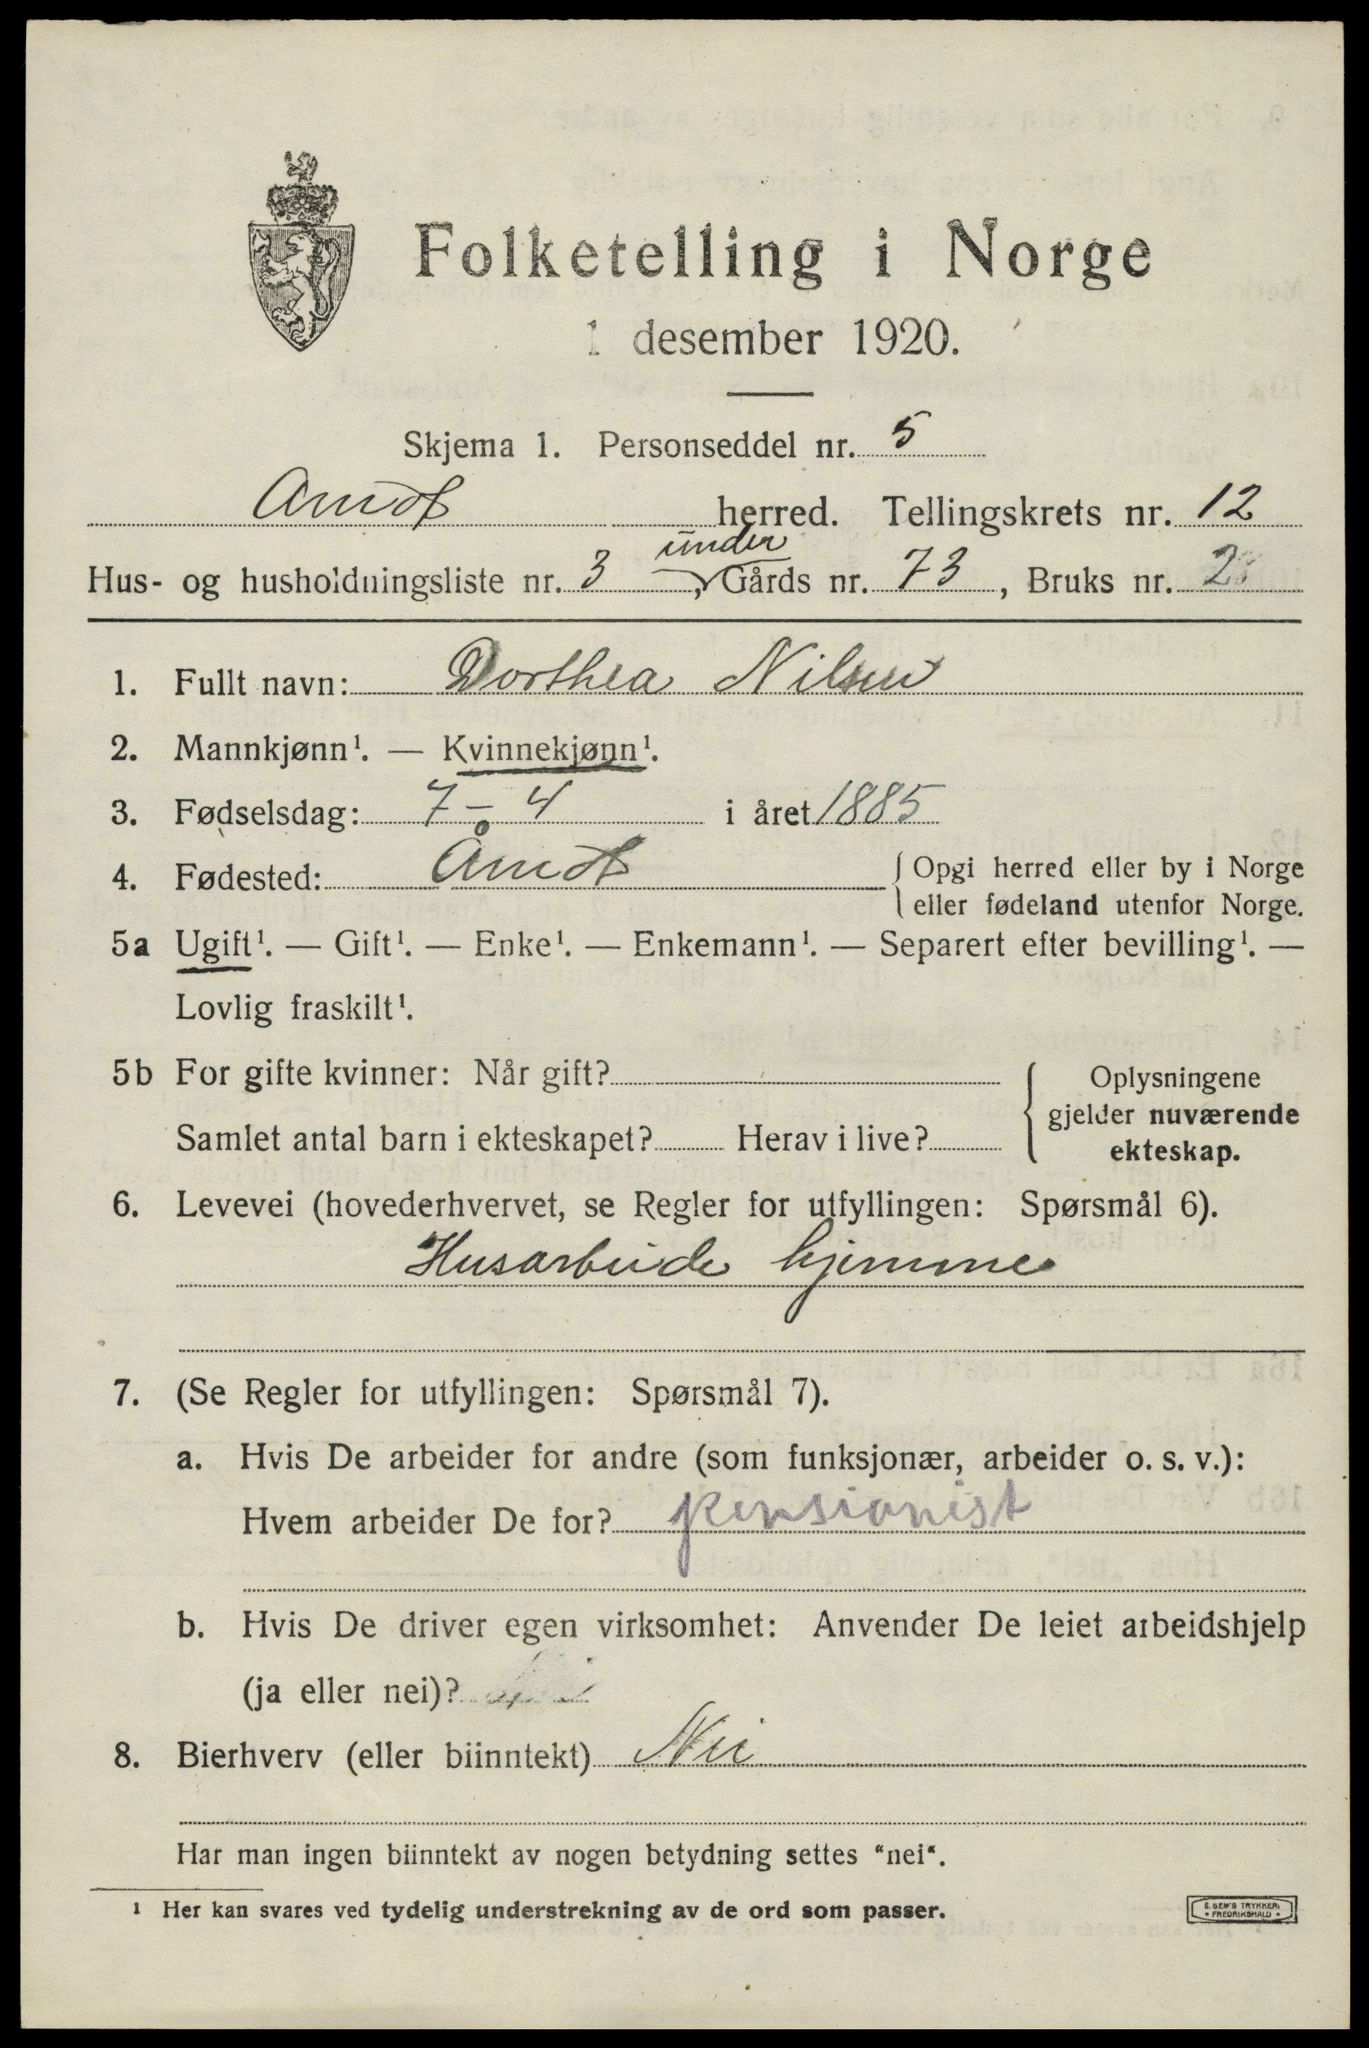 Folketelling i Norge
1 desember 1920.
Skjema 1. Personseddel nr. 5
Åmot herred. Tellingskrets nr. 12
under
Hus- og husholdningsliste nr. 3, Gårds nr. 73, Bruks nr. 2
1. Fullt navn: Dorthea Nilsen
2. Mannkjønn¹. — Kvinnekjønn¹.
3. Fødselsdag: 7 - 4 i året 1885
4. Fødested: Åmot { Opgi herred eller by i Norge
eller fødeland utenfor Norge.
5a Ugift¹. — Gift¹. — Enke¹. — Enkemann¹. — Separert efter bevilling¹. —
Lovlig fraskilt¹.
5b For gifte kvinner: Når gift?
Samlet antal barn i ekteskapet? Herav i live?
{ Oplysningene
gjelder nuværende
ekteskap.
6. Levevei (hovederhvervet, se Regler for utfyllingen: Spørsmål 6).
Husarbeide hjemme
7. (Se Regler for utfyllingen: Spørsmål 7).
a. Hvis De arbeider for andre (som funksjonær, arbeider o. s. v.):
Hvem arbeider De for? pensionist
b. Hvis De driver egen virksomhet: Anvender De leiet arbeidshjelp
(ja eller nei)?
8. Bierhverv (eller biinntekt) Nei
Har man ingen biinntekt av nogen betydning settes "nei".
¹ Her kan svares ved tydelig understrekning av de ord som passer.
S. SEM'S TRYKKERI
• FREDRIKSHALD •